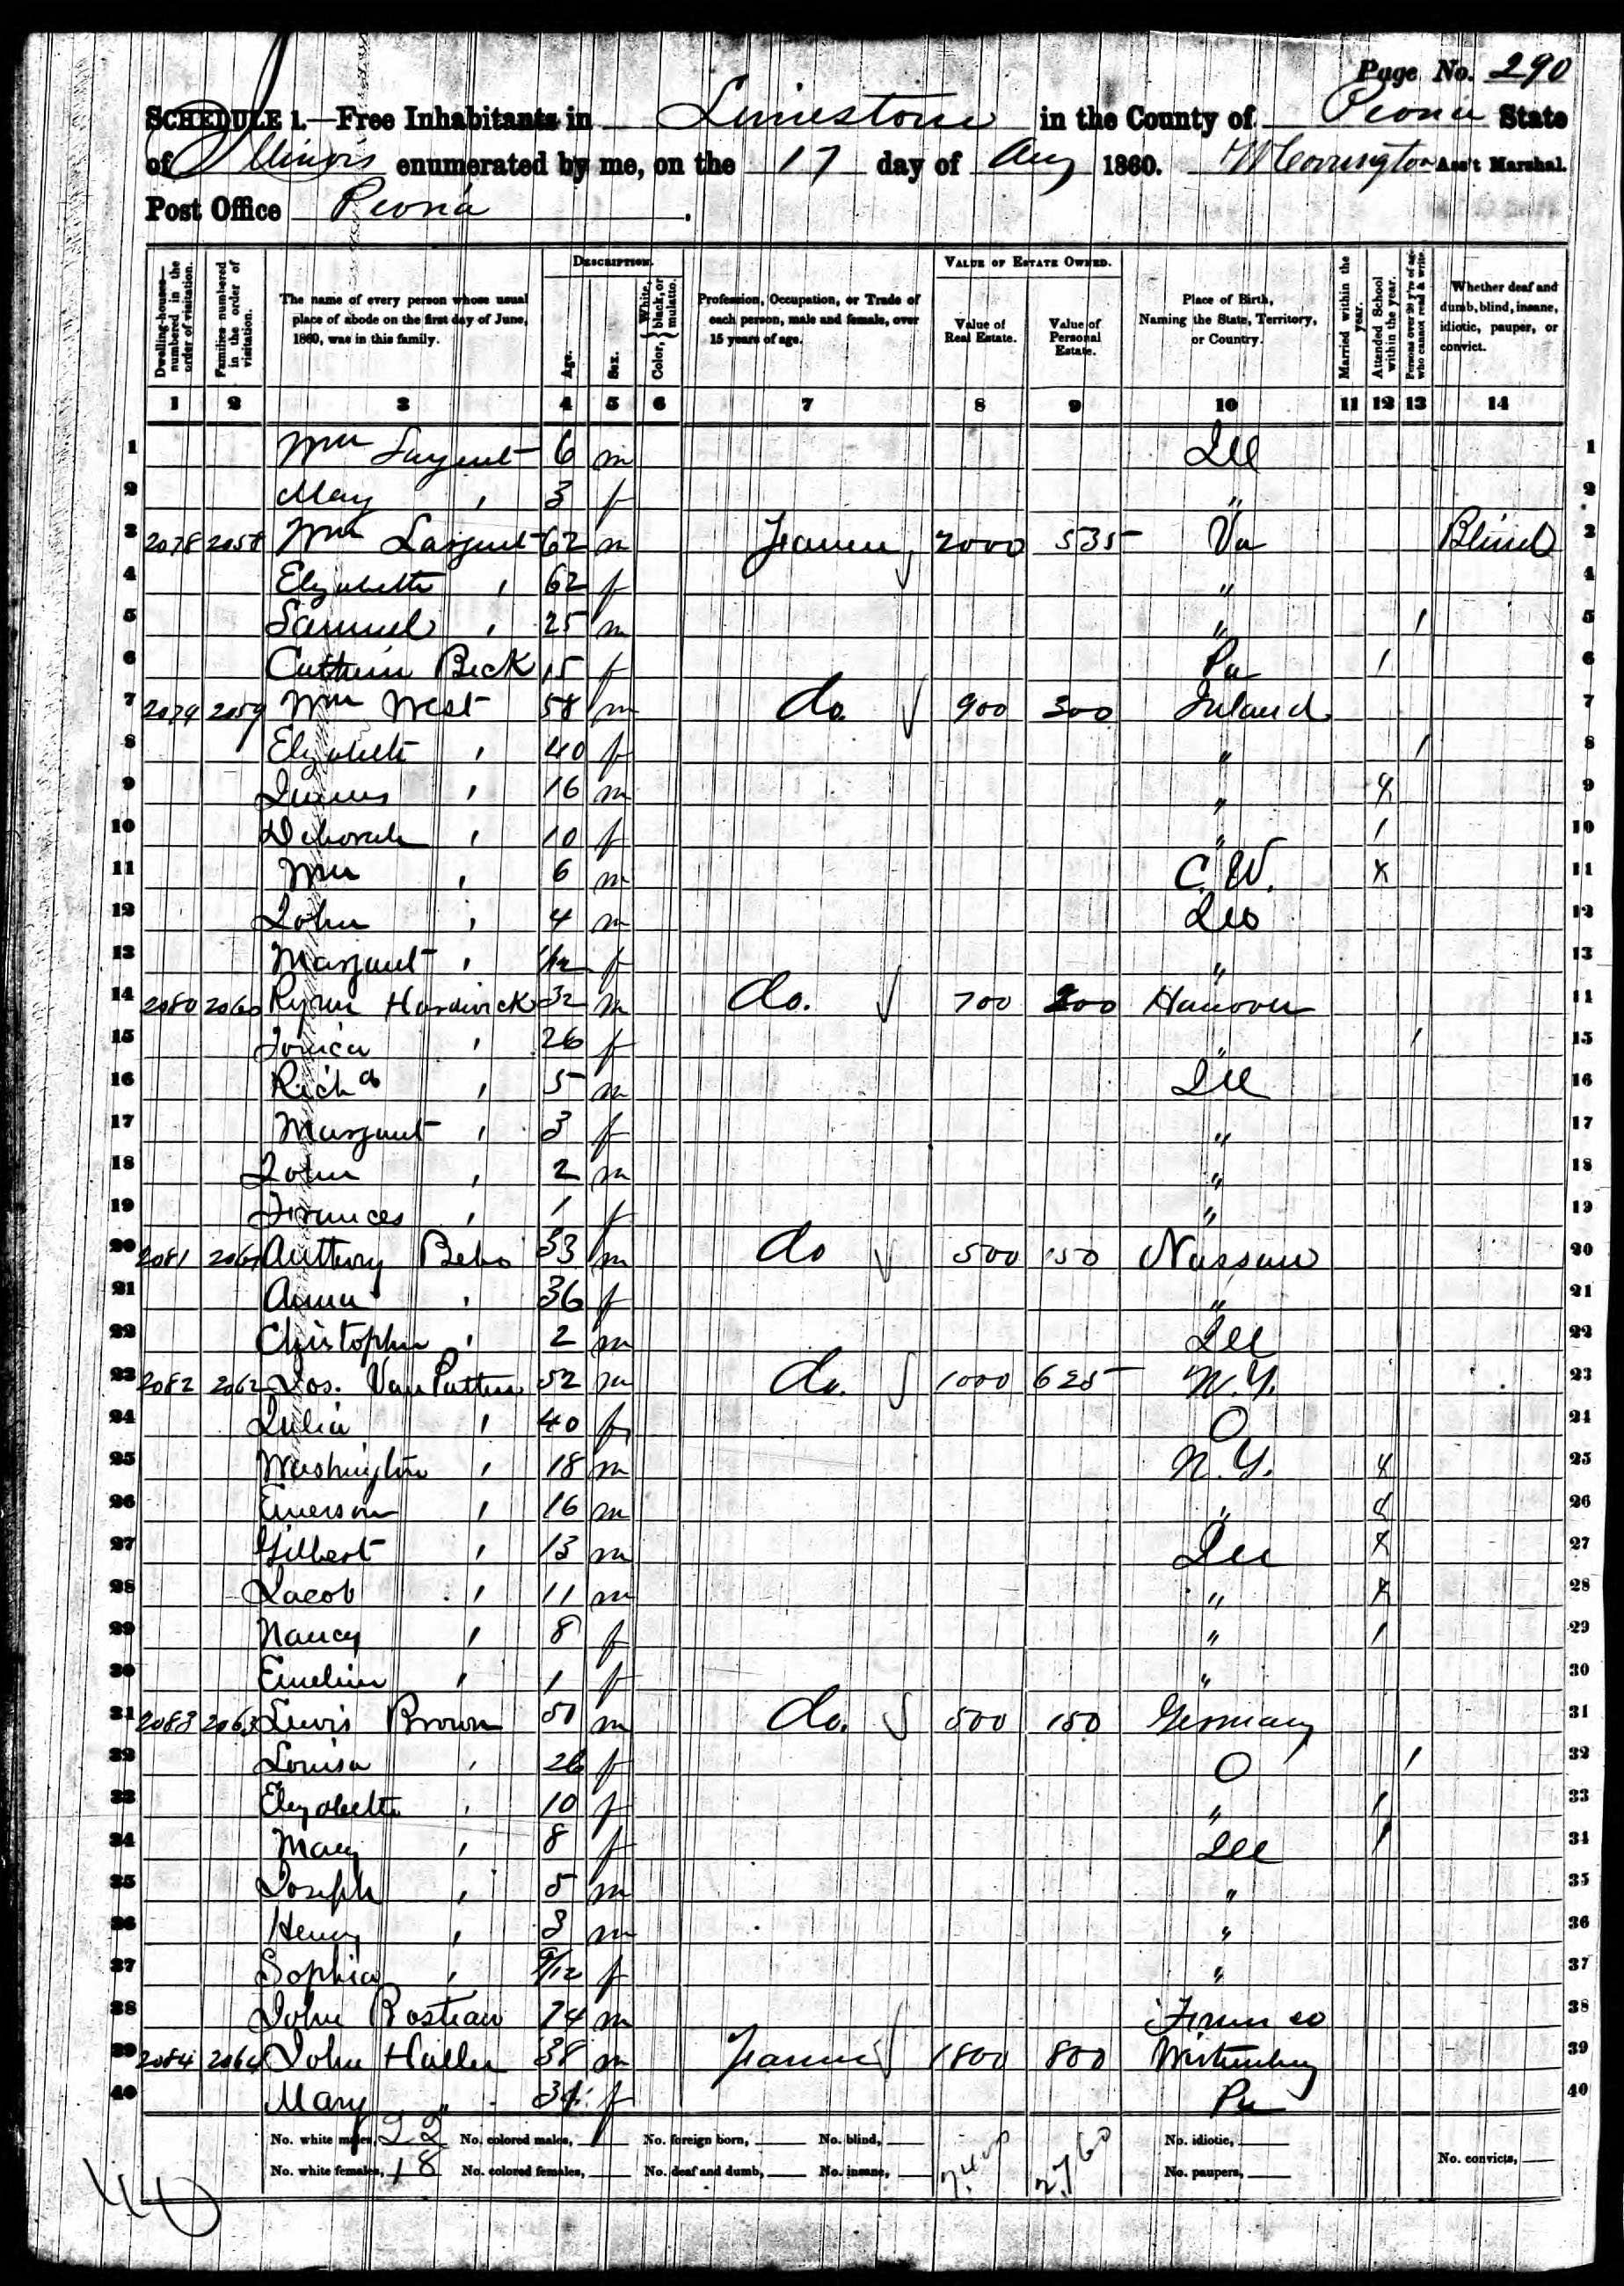 Page No. 290
SCHEDULE 1.—Free Inhabitants in Limestone in the County of Peoria State
of Illinois enumerated by me, on the 17 day of Aug 1860. Ass't Marshal.
Post Office Peoria.
Dwelling-houses—numbered in the order of visitation.
Families numbered in the order of visitation.
The name of every person whose usual place of abode on the first day of June, 1860, was in this family.
DESCRIPTION.
Age.
Sex.
Color, { White, black, or mulatto.
Profession, Occupation, or Trade of each person, male and female, over 15 years of age.
VALUE OF ESTATE OWNED.
Value of Real Estate.
Value of Personal Estate.
Place of Birth, Naming the State, Territory, or Country.
Married within the year.
Attended School within the year.
Persons over 20 y'rs of age who cannot read & write.
Whether deaf and dumb, blind, insane, idiotic, pauper, or convict.
1 2 3 4 5 6 7 8 9 10 11 12 13 14
1 Wm 6 m Ill 1
2 May " 3 f " 2
3 2078 2058 Wm 62 m Farmer 2000 535 Va Blind 3
4 Elizabeth " 62 f " 4
5 Samuel " 25 m " / 5
6 Beck 15 f Pa / 6
7 2079 2059 Wm West 58 m do. 900 300 Ireland 7
8 Elizabeth " 40 f " / 8
9 James " 16 m " X 9
10 Deborah " 10 f " / 10
11 Wm " 6 m C. W. X 11
12 John " 4 m Ill 12
13 Margaret " f " 13
14 2080 2060 Hardwick 32 m do. 700 200 Hanover 14
15 " 26 f " / 15
16 Richd " 5 m Ill 16
17 Margaret " 3 f " 17
18 John " 2 m " 18
19 Frances " 1 f " 19
20 2081 2061 Anthony 33 m do 500 150 Nassau 20
21 Anna " 36 f " 21
22 Christopher " 2 m Ill 22
23 2082 2062 Jos. Van Patten 52 m do. 1000 625 N.Y. 23
24 Julia " 40 f O 24
25 Washington " 18 m N.Y. X 25
26 Emerson " 16 m " X 26
27 Gilbert " 13 m Ill X 27
28 Jacob " 11 m " X 28
29 Nancy " 8 f " / 29
30 Emeline " 1 f " 30
31 2083 2063 Lewis Brown 50 m do. 500 150 Germany 31
32 Louisa " 26 f O / 32
33 Elizabeth " 10 f " / 33
34 Mary " 8 f Ill / 34
35 Joseph " 5 m " 35
36 Henry " 3 m " 36
37 Sophia " 9/12 f " 37
38 John 74 m 38
39 2084 2064 John Haller 38 m Farmer 1800 800 Wirtemberg 39
40 Mary " 34 f Pa 40
No. white males, 22 No. colored males, No. foreign born, No. blind, No. idiotic,
No. white females, 18 No. colored females, No. deaf and dumb, No. insane, 7400 2760 No. paupers, No. convicts,